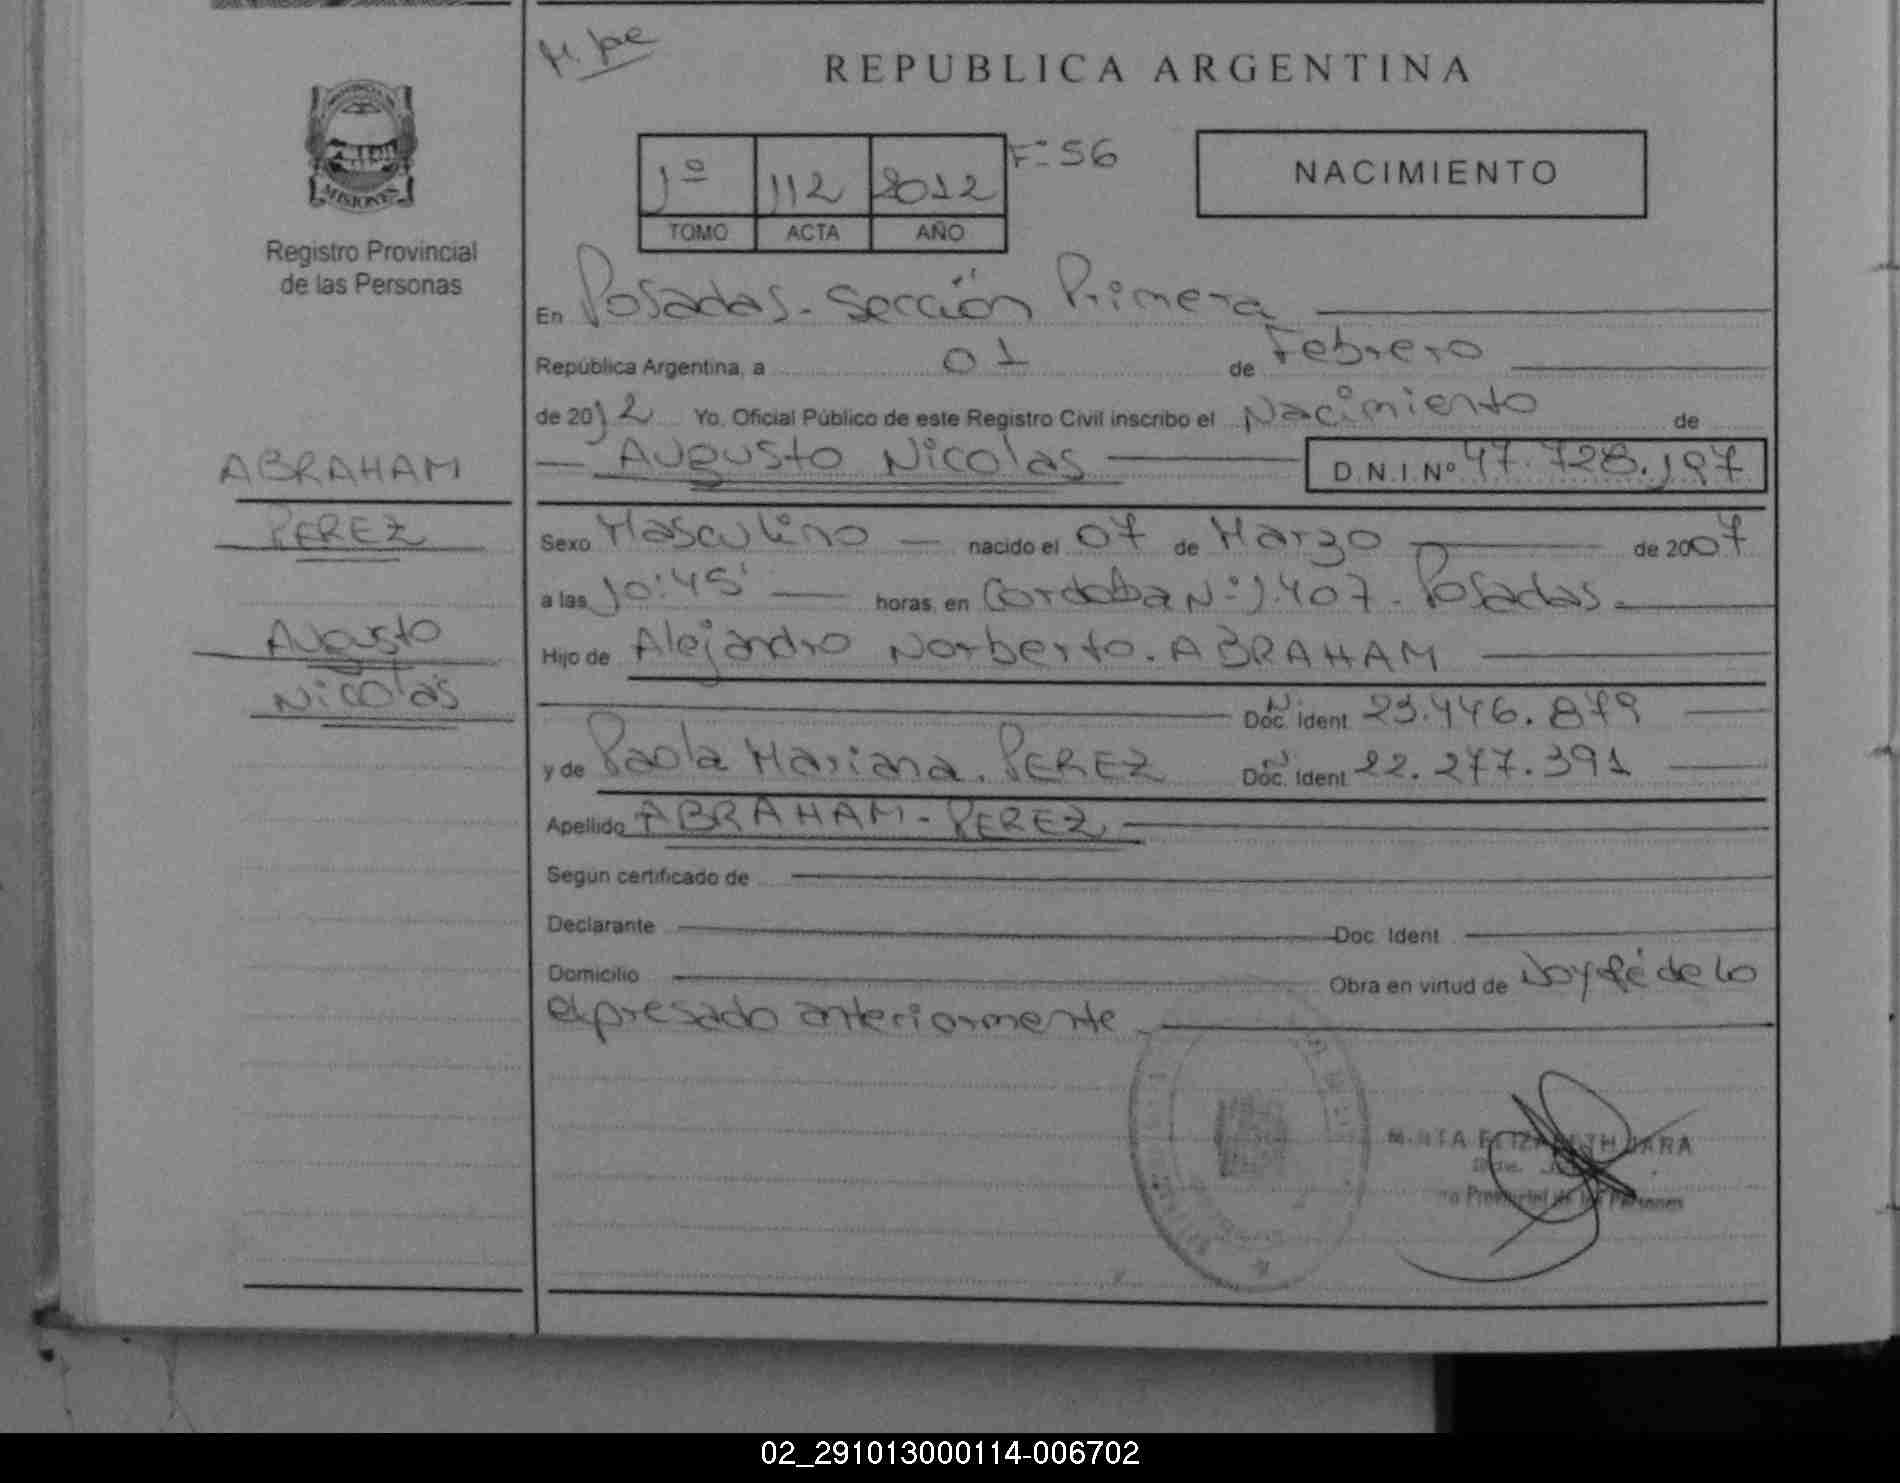 REPUBLICA ARGENTINA
MISIONES
Registro Provincial
de las Personas
1º 112 2012 F=56
TOMO ACTA AÑO
NACIMIENTO
En Posadas - Sección Primera
República Argentina, a 01 de Febrero
de 2012 Yo, Oficial Público de este Registro Civil inscribo el Nacimiento de
Augusto Nicolas D.N.I. Nº 47.728.197
ABRAHAM
PEREZ
Augusto
Nicolas
Sexo Masculino nacido el 07 de Marzo de 2007
a las 10:45' horas, en Cordoba Nº 1.407 - Posadas
Hijo de Alejandro Norberto. ABRAHAM
Doc. Ident 23.446.879
y de Paola Mariana. PEREZ Doc. Ident 22.277.391
Apellido ABRAHAM - PEREZ
Según certificado de
Declarante Doc. Ident
Domicilio Obra en virtud de Doy fé de lo
expresado anteriormente
ELIZABETH JARA
Provincial de las Personas
02_291013000114-006702